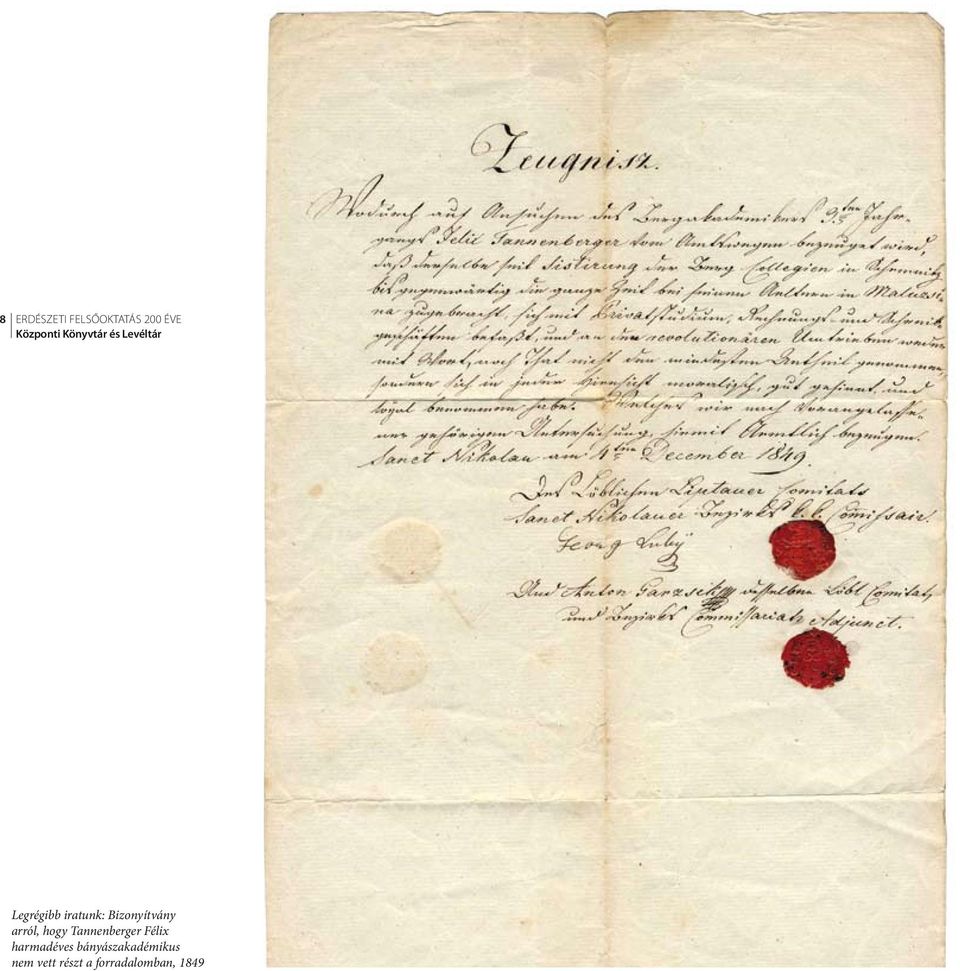 8 ERDÉSZETI FELSŐOKTATÁS 200 ÉVE
Központi Könyvtár és Levéltár
Zeugnisz.
Wodurch auf Ansuchen des Bergakademikers 3ten Jahr-
gangs Felix Tannenberger vom Amtswegen bezeuget wird,
daß derselbe seit Sistirung der Berg Collegien in Schemnitz
bis gegenwärtig die ganze Zeit bei seinen Aeltern in Maluzsi-
na zugebracht, sich mit Privatstudium, Rechnungs- und Schreib-
geschäften befaßt, und an den revolutionären Umtrieben weder
mit Wort, noch That nicht den mindesten Antheil genommen,
sondern sich in jeder Hinsicht moralisch, gut gesinnt, und
loyal benommen habe. Welches wir nach Vorangelasse-
ner gehörigen Untersuchung hiemit Aemtlich bezeugen.
Sanct Nikolau am 4ten December 1849.
Des Löblichen Liptauer Comitats
Sanct Nikolauer Bezirks k. k. Commissair.
Georg Luby
Und Anton desselben Löbl Comitats
und Bezirks Commissariats Adjunct.
Legrégibb iratunk: Bizonyítvány
arról, hogy Tannenberger Félix
harmadéves bányászakadémikus
nem vett részt a forradalomban, 1849